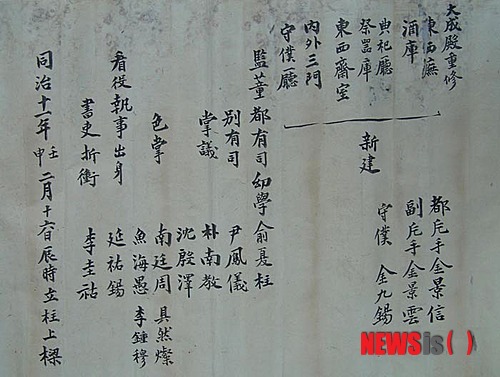 大成殿重修
東西廡
酒庫
典祀廳
祭器庫
東西齋室
內外三門
守僕一廳
新建
都片手金景信
副片手金景雲
守僕 金九錫
監董 都有司 幼學 兪夏柱
別有司 尹鳳儀
掌議 朴南教
沈殷澤
色掌 南廷周 具然燦
魚海愚 李鍾穆
看役執事出身 延祐錫
書史折衝 李圭祜
同治十一年壬申二月十六日辰時立柱上樑
NEWSis( )